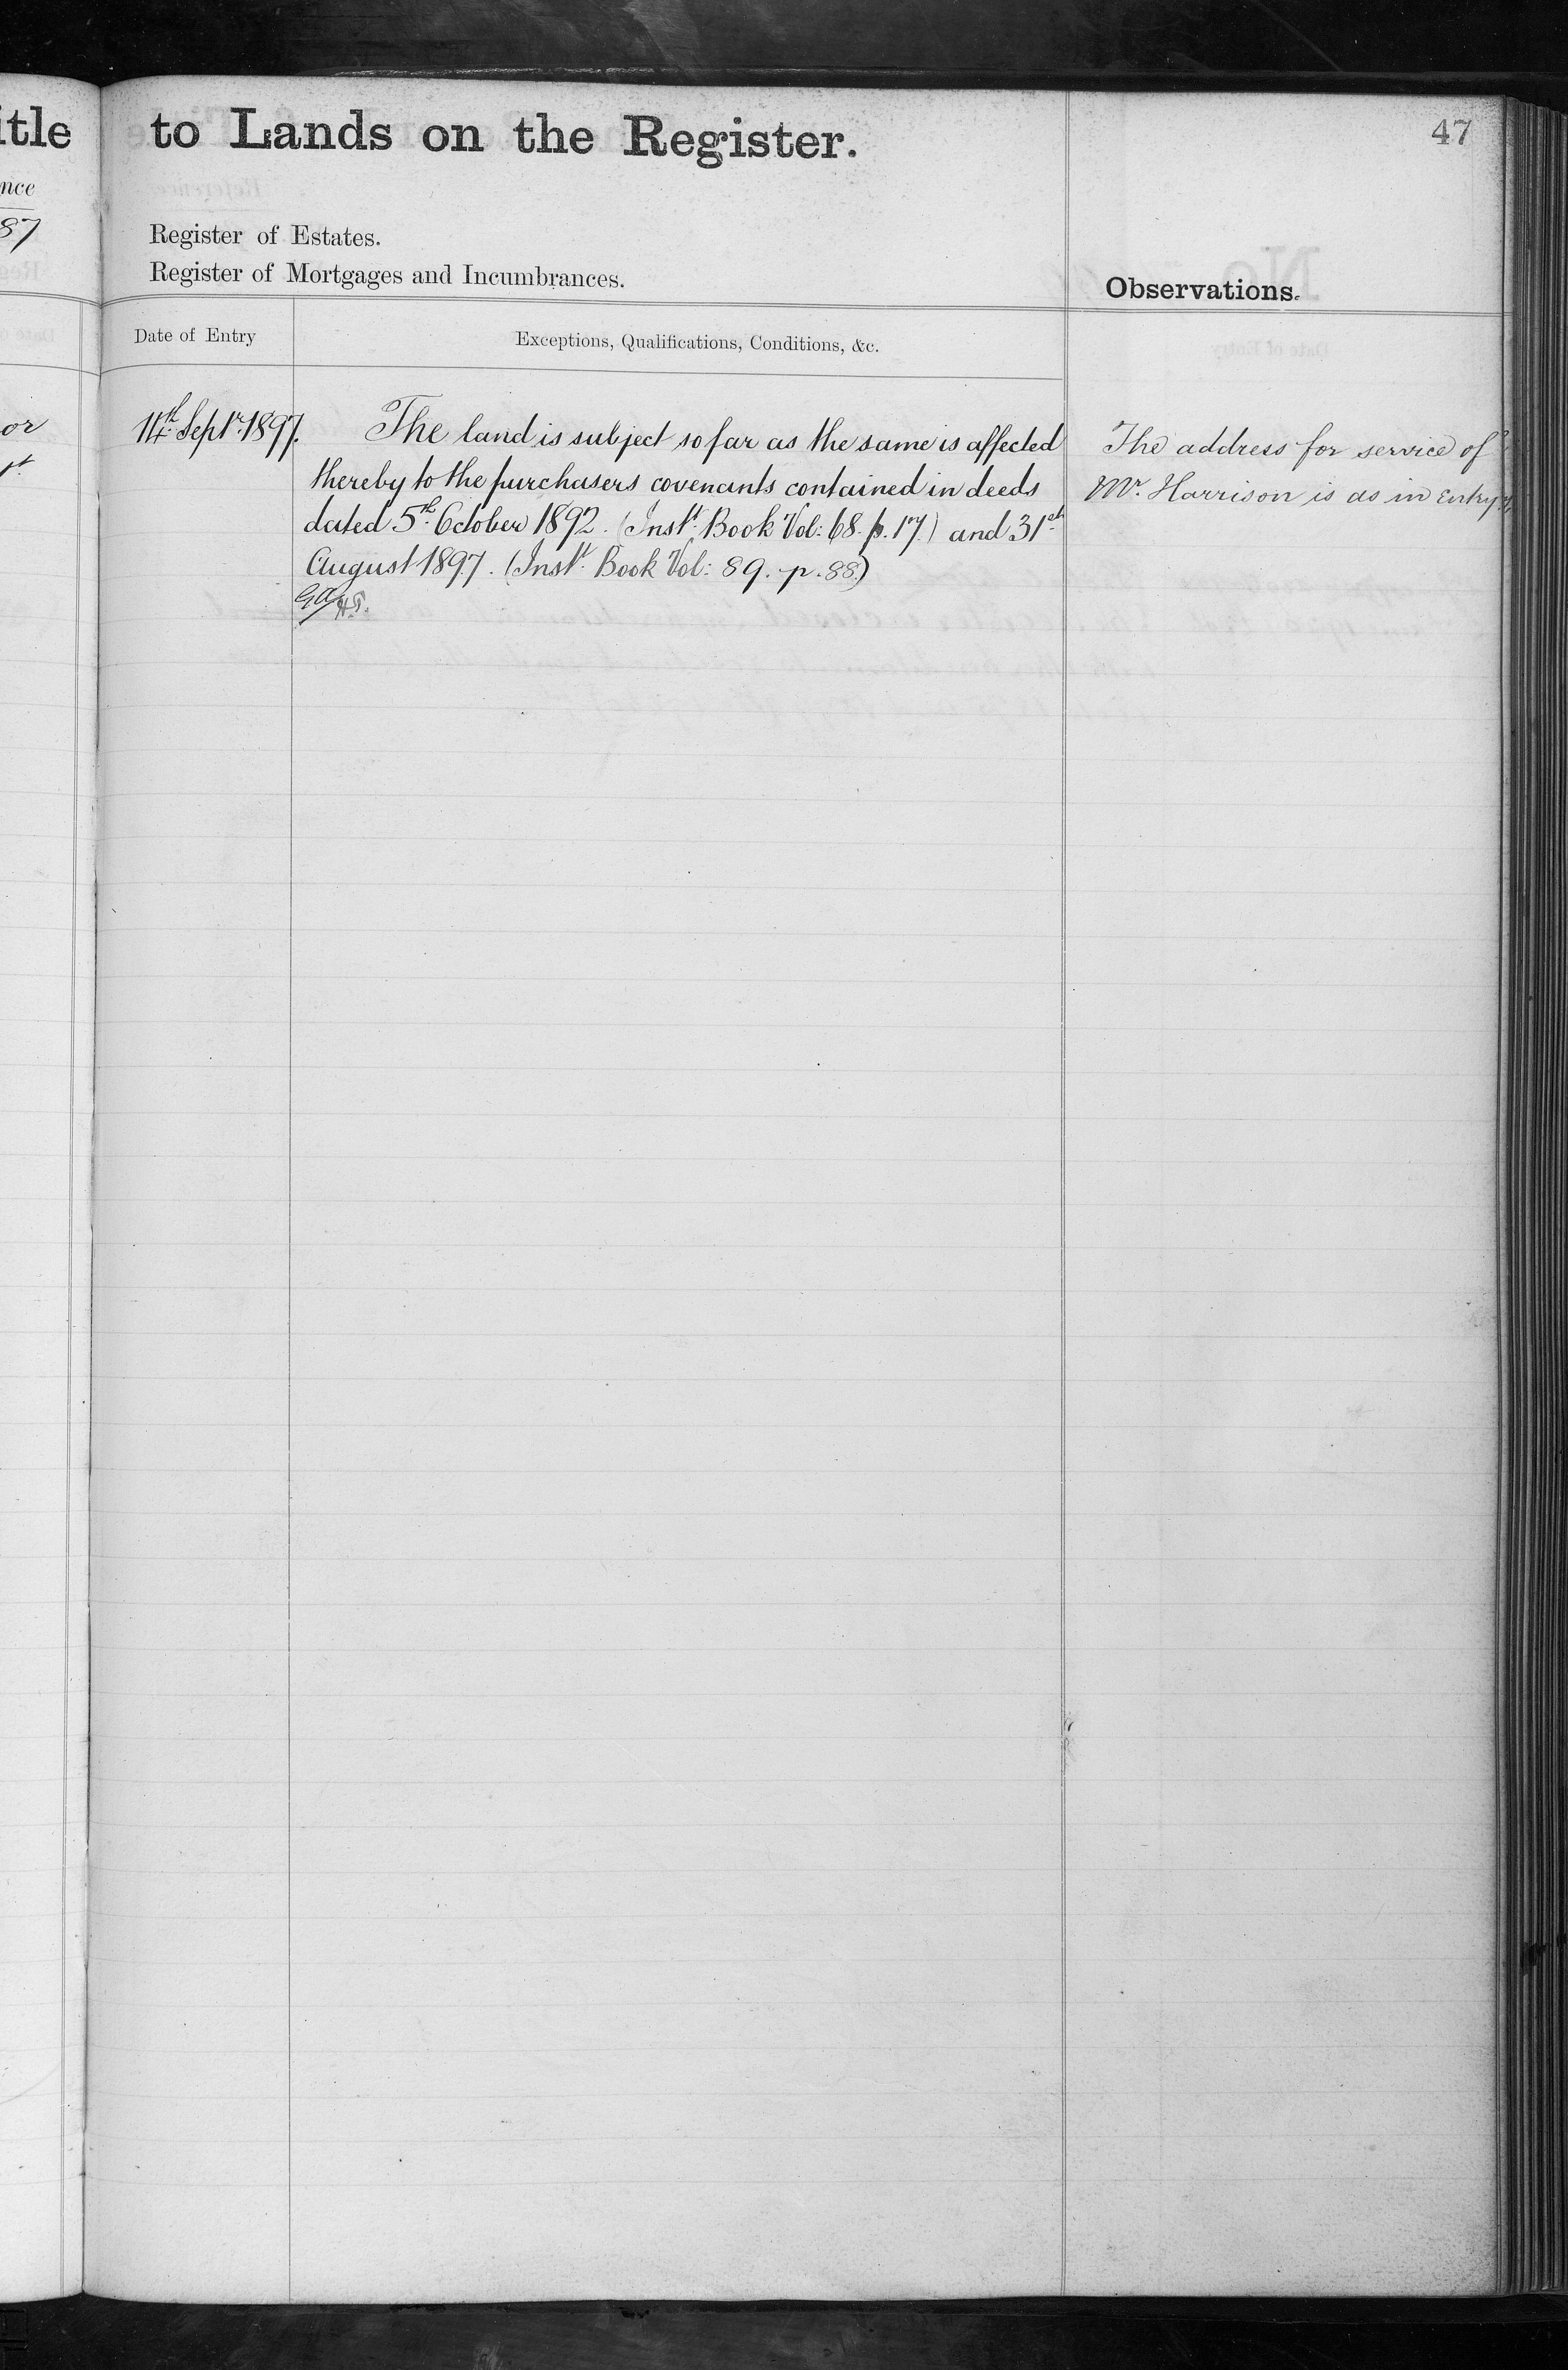 itle
nce
87
or
to Lands on the Register.
47
Register of Estates.
Register of Mortgages and Incumbrances.
Observations.
Date of Entry
Exceptions, Qualifications, Conditions, &c.
14th Septr. 1897.
The land is subject so far as the same is affected
thereby to the purchasers covenants contained in deeds
dated 5th October 1892. (Instt. Book Vol: 68. p. 17.) and 31st
August 1897. (Instt. Book Vol: 89. p. 88.)
The address for service of
Mr. Harrison is as in Entry